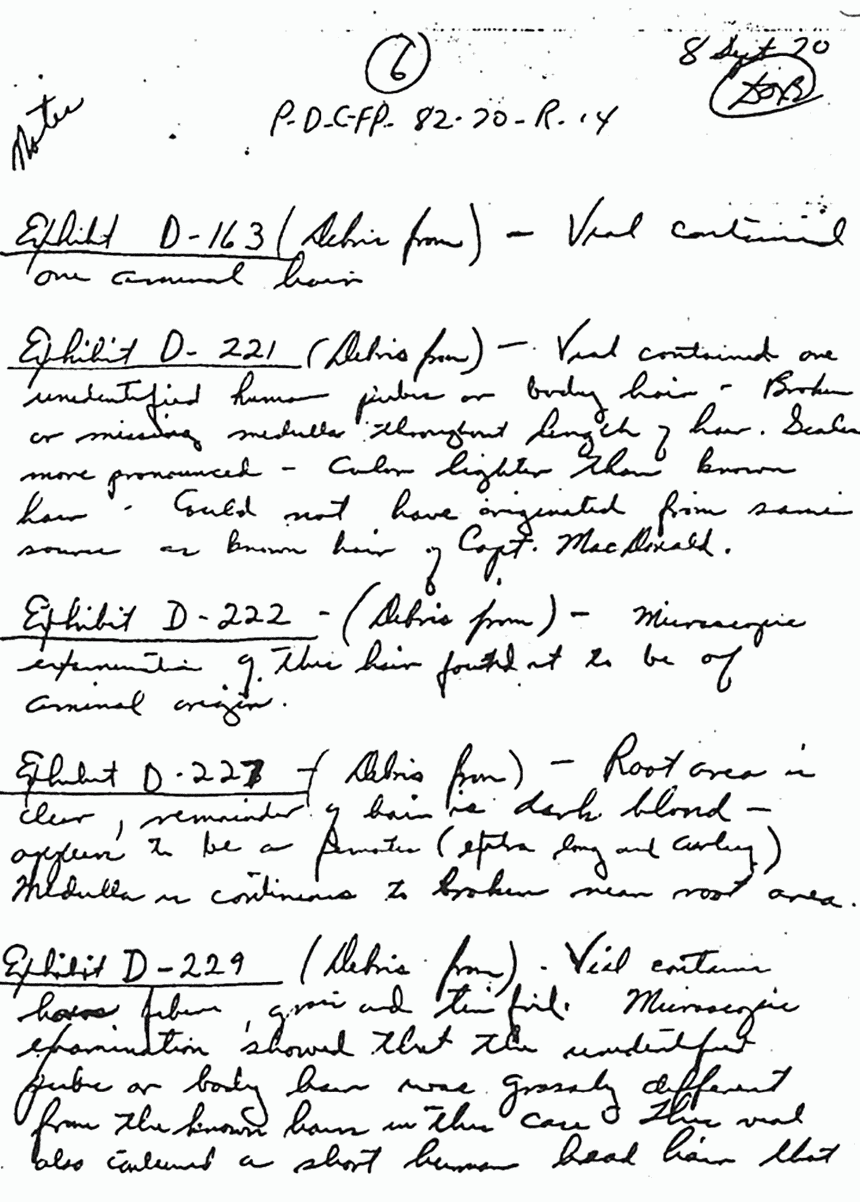 6
8 Sept 70
Notes
P-D-C-FP- 82-70-R-14
Exhibit D-163 (Debris from) – Vial contained
one animal hair
Exhibit D-221 (Debris from) – Vial contained one
unidentified human pubic or body hair – Broken
or missing medulla throughout length of hair. Scales
more pronounced – Color lighter than known
hair - Could not have originated from same
source as known hair of Capt. MacDonald.
Exhibit D-222 – (Debris from) – Microscopic
examination of this hair found it to be of
animal origin.
Exhibit D-227 – (Debris from) – Root area is
clear, remainder of hair is dark blond –
appears to be a (extra long and curley)
Medulla is continous to broken near root area.
Exhibit D-229 (Debris from). Vial contains
fibers, and tin foil. Microscopic
examination showed that the unidentified
pubic or body hair was grossly different
from the known hairs in this case. This vial
also contained a short human head hair that